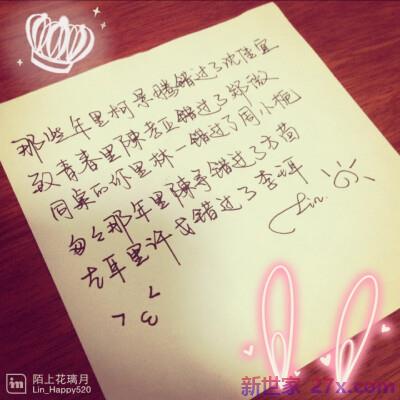 那些年里柯景腾错过了沈佳宜
致青春里陳孝正错过了郑微
同桌的你里林一错过了周小栀
匆匆那年里陳寻错过了方茴
左耳里许弋错过了李珥
Lin.
陌上花璃月
Lin_Happy520
新世家 27x.com